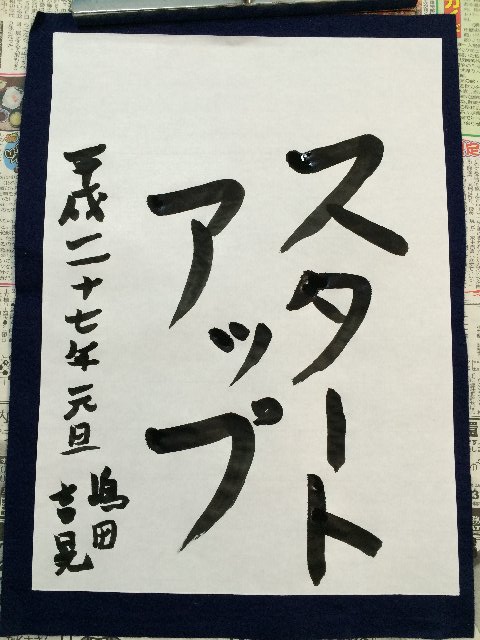 スタート
アップ
平成二十七年元旦
嶋田
吉晃